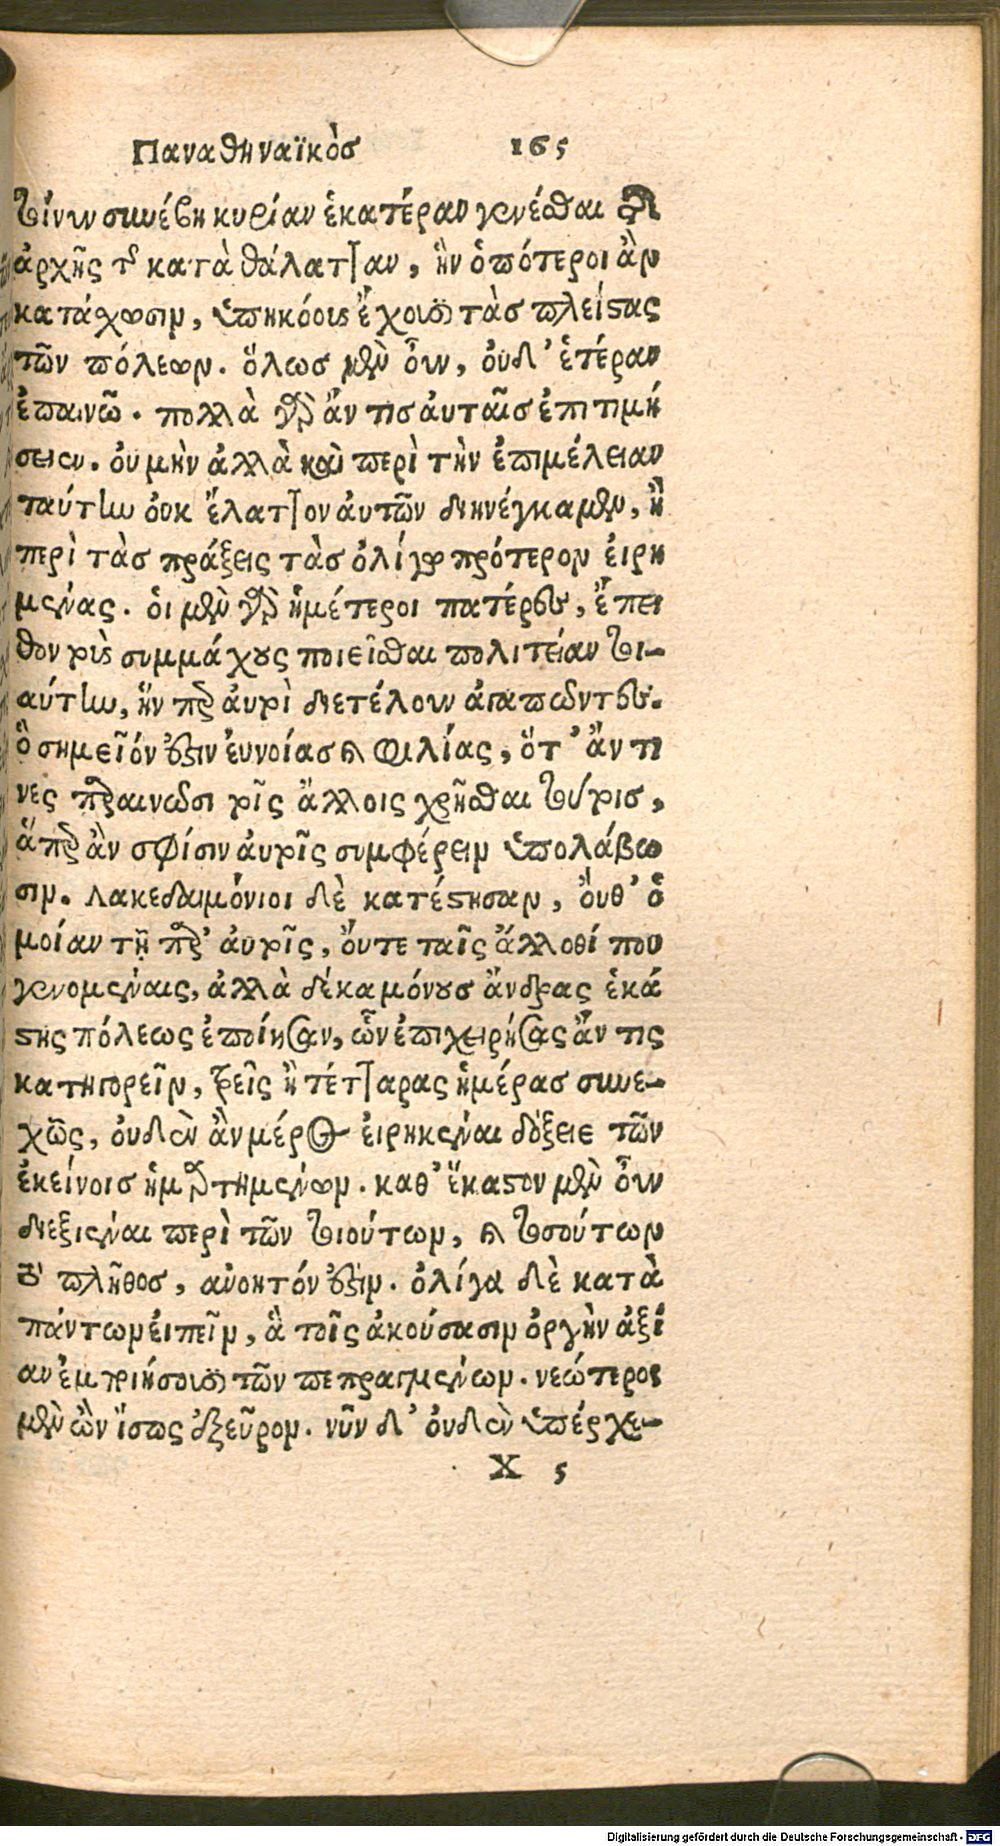 Παναθηναϊκὸσ 165
τοίνυν συνέβη κυρίαν ἑκατέραν γενέσθαι τῆς
ἀρχῆς τῆς κατὰ θάλατταν, ἣν ὁπότεροι ἂν
κατάχωσιν, ὑπηκόους ἔχουσι τὰσ πλείστας
τῶν πόλεων. ὅλωσ μὲν οὖν, οὐδ' ἑτέραν
ἐπαινῶ. πολλὰ γὰρ ἄν τισ ἀυταῖσ ἐπιτιμή
σειεν. ὀυ μὴν ἀλλὰ καὶ περὶ τὴν ἐπιμέλειαν
ταύτην ὀυκ ἔλαττον ἀυτῶν διηνέγκαμεν, ἢ
περὶ τὰσ πράξεις τὰσ ὀλίγῳ πρότερον ἐιρη
μένας. ὁι μὲν γὰρ ἡμέτεροι πατέρες, ἔπει
θον τοὺς συμμάχους ποιεῖσθαι πολιτείαν τοι-
αύτην, ἥνπερ ἀυτοὶ διετέλουν ἀγαπῶντες.
ὃ σημεῖόν ἐστιν ἐυνοίασ καὶ φιλίας, ὅτ' ἄν τι
νες παραινῶσι τοῖς ἄλλοις χρῆσθαι τούτοισ,
ἅπερ ἂν σφίσιν ἀυτοῖς συμφέρειν ὑπολάβω
σιν. Λακεδαιμόνιοι δὲ κατέστησαν, ὄυθ' ὁ
μοίαν τῇ παρ' ἀυτοῖς, ὄυτε ταῖς ἄλλοθί που
γενομέναις, ἀλλὰ δέκα μόνουσ ἄνδρας ἑκά
στης πόλεως ἐποίησαν, ὧν ἐπιχειρήσας ἄν τις
κατηγορεῖν, τρεῖς ἢ τέτταρας ἡμέρασ συνε-
χῶς, ὀυδὲν ἂν μέρος ἐιρηκέναι δόξειε τῶν
ἐκείνοισ ἡμαρτημένων. καθ' ἕκαστον μὲν οὖν
διεξιέναι περὶ τῶν τοιούτων, καὶ τοσούτων
τὸ πλῆθοσ, ἀνοητόν ἐστιν. ὀλίγα δὲ κατὰ
πάντων ἐιπεῖν, ἃ τοῖς ἀκούσασιν ὀργὴν ἀξί
αν ἐμποιήσουσι τῶν πεπραγμένων. νεώτερος
μὲν ὢν ἴσως ἐξεῦρον. νῦν δ' ὀυδὲν ὑπέρχε-
X 5
Digitalisierung gefördert durch die Deutsche Forschungsgemeinschaft - DFG